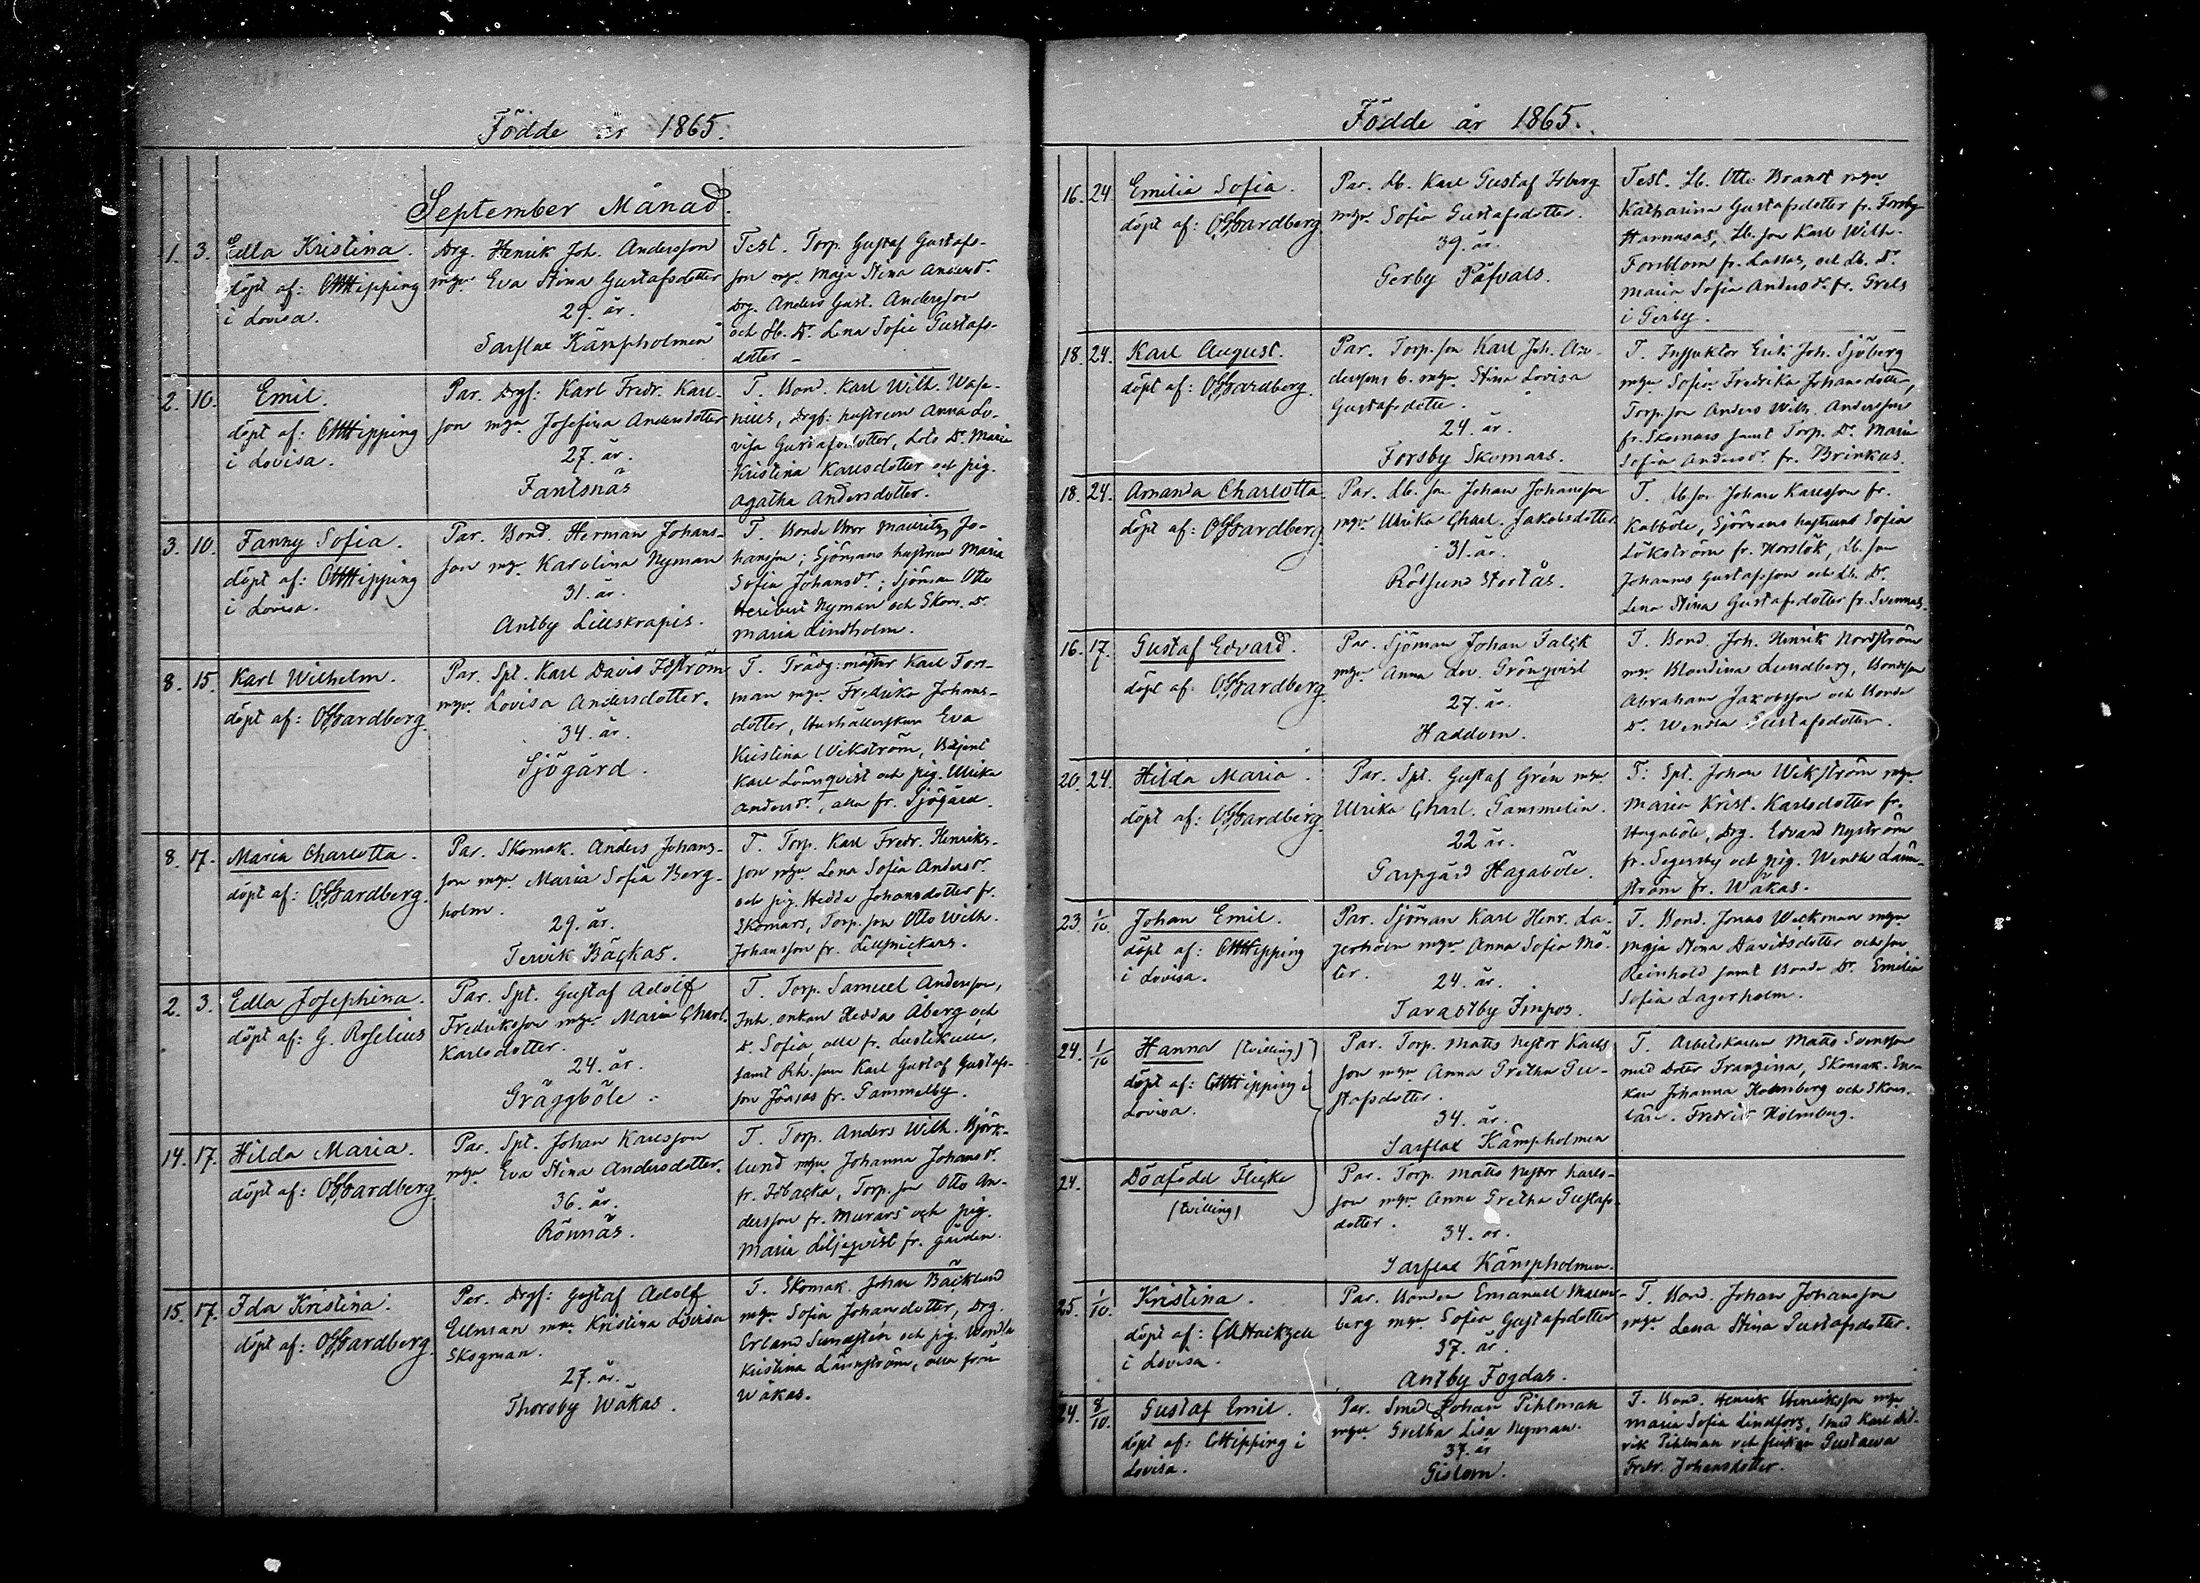 Födde år 1865.
September Månad.
1. 3. Edla Kristina.
döpt af: Hipping
i Lovisa.
Drg. Henrik Joh. Andersson
mgn Eva Stina Gustafsdotter
29. år.
Sarflax Kämpholmen
Test. Torp. Gustaf Gustafs-
son mgn Maja Stina Andersdr
Drg. Anders Gust. Andersson
och Lb. Dr Lena Sofie Gustafs-
dotter –
2. 10. Emil.
döpt af: Hipping
i Lovisa.
Par. Drgf: Karl Fredr. Karl-
son mgn Josefina Andersdotter
27. år.
Fantsnäs
T. Bond. Karl Wilh. Wase-
nius, Drgf: hustrun Anna Lo-
visa Gustafsdotter, Lots Dr Maria
Kristina Karlsdotter och pig.
Agatha Andersdotter.
3. 10. Fanny Sofia.
döpt af: Hipping
i Lovisa.
Par. Bond. Herman Johans-
son mgn Karolina Nyman
31. år.
Antby Lillskrapis.
T. Bonde Mauritz Jo-
hansson; Sjömans hustrun Maria
Sofia Johansdr; Sjöman Otto
Heribert Nyman och Skom. Dr
Maria Lindholm.
8. 15. Karl Wilhelm.
döpt af: Gardberg.
Par. Spt. Karl David Idström
mgn Lovisa Andersdotter.
34. år.
Sjögård.
T. Trädg: mäster Karl Fors-
man mgn Fredrika Johans-
dotter, Hushållerskan Eva
Kristina Wikström, Betjent
Karl Lönnqvist och pig. Ulrika
Andersdr, alla fr. Sjögård.
8. 17. Maria Charlotta.
döpt af: Gardberg.
Par. Skomak. Anders Johans-
son mgn Maria Sofia Berg-
holm.
29. år.
Tervik Bäckas.
T. Torp. Karl Fredr. Henriks-
son mgn Lena Sofia Andersdr
och pig. Hedda Johansdotter fr.
Skomars, Torp. son Otto Wilh.
Johansson fr. Lillsnickars.
2. 3. Edla Josephina.
döpt af: G. Roselius
Par. Spt. Gustaf Adolf
Fredriksson mgn Maria Charl.
Karlsdotter.
24. år.
Gräggböle.
T. Torp. Samuel Andersson,
Inh. enkan Hedda Åberg och
Dr Sofia, alla fr.
samt Rh. son Karl Gustaf Gustafs-
son Jönsas fr. Gammelby.
14. 17. Hilda Maria.
döpt af: Gardberg.
Par. Spt. Johan Karlsson
mgn Eva Stina Andersdotter.
36. år.
Rönnäs.
T. Torp. Anders Wilh. Björk-
lund mgn Johanna Johansdr
fr. Isbacka, Torp. son Otto An-
dersson fr. Murars och pig.
Maria Liljeqvist fr. gården.
15. 17. Ida Kristina.
döpt af: Gardberg.
Par. Drgf: Gustaf Adolf
Ellman mgn Kristina Lovisa
Skogman.
27. år.
Thorsby Wåkas.
T. Skomak. Johan Bäcklund
mgn Sofia Johansdotter, Drg.
Erland Sundsten och pig. Wendla
Kristina Lännström, alla från
Wåkas.
Födde år 1865.
16. 24 Emilia Sofia.
döpt af: Gardberg.
Par. Lb. Karl Gustaf Isberg
mgn Sofia Gustafsdotter.
39. år.
Gerby Påfvals.
Test. Lb. Otto Brandt mgn
Katharina Gustafsdotter fr. Forsby
Hannusas, Lb. son Karl Wilh.
Forsblom fr. Lassas, och Lb. Dr
Maria Sofia Andersdr fr. Grels
i Gerby.
18. 24. Karl August.
döpt af: Gardberg.
Par. Torp. son Karl Joh. An-
derssons b. mgn Stina Lovisa
Gustafsdotter.
24. år.
Forsby Skomars.
T. Inspektor Erik Joh. Sjöberg
mgn Sofia Fredrika Johansdotter,
Torp. son Anders Wilh. Andersson
fr. Skomars samt Torp. Dr Maria
Sofia Andersdr fr. Brinkas.
18. 24. Amanda Charlotta.
döpt af: Gardberg
Par. Lb. son Johan Johansson
mgn Ulrika Charl. Jakobsdotter
31. år.
Rödsund Storsås.
T. Lb son Johan Karlsson fr.
Kalböle, Sjömans hustrun Sofia
Lökström fr. Horslök, Lb. son
Johannes Gustafsson och Lb. Dr
Lena Stina Gustafsdotter fr. Svennas.
16. 17. Gustaf Edvard.
döpt af: Gardberg.
Par. Sjöman Johan Falck
mgn Anna Lov. Grönqvist
27. år.
Haddom.
T. Bond. Joh. Henrik Nordström
mgn Blondina Lundberg, Bondeson
Abraham Jakobsson och Bonde
Dr Wendla Gustafsdotter.
20. 24. Hilda Maria.
döpt af: Gardberg.
Par. Spt. Gustaf Grön mgn
Ulrika Charl. Gammelin.
22 år.
Garpgård Hagaböle.
T: Spt. Johan Wikström mgn
Maria Krist. Karlsdotter fr.
Hagaböle, Drg. Edvard Nyström
fr. Segersby och pig. Wendla Länn-
ström fr. Wåkas.
23. 1/10 Johan Emil.
döpt af: Hipping
i Lovisa.
Par. Sjöman Karl Henr. La-
gerholm mgn Anna Sofia Mö-
ler.
24. år.
Tavastby Impos.
T. Bond. Jonas Weckman mgn
Maja Stina Davidsdotter och son
Reinhold samt Bonde Dr Emilia
Sofia Lagerholm.
24. 1/10 Hanna (tvilling)
döpt af: Hipping i
Lovisa.
Par. Torp. Matts Nestor Karls-
son mgn Anna Gretha Gu-
stafsdotter.
34. år.
Sarflax Kämpholmen
T. Arbetskarlen Matts Svensson
med dotter Franzina, Skomak. En-
kan Johanna Holmberg och Skom.
lär. Fredrik Holmberg.
24. Dödfödd Flicka
(tvilling)
Par. Torp. Matts Nestor Karls-
son mgn Anna Gretha Gustafs-
dotter.
34. år.
Sarflax Kämpholmen.
25. 1/10 Kristina.
döpt af:
i Lovisa.
Par. Bonden Emanuel Malm-
berg mgn Sofia Gustafsdotter
37. år.
Antby Fogdas.
T. Bond. Johan Johansson
mgn Lena Stina Gustafsdotter.
24. 8/10 Gustaf Emil.
döpt af: Hipping i
Lovisa.
Par. Smed Johan Pihlman
mgn Gretha Lisa Nyman.
37. år
Gislom.
T. Bond. Henrik Henriksson mgn
Maria Sofia Lindfors, Smed Karl
Pihlman och flickan Gustava
Fredr. Johansdotter.